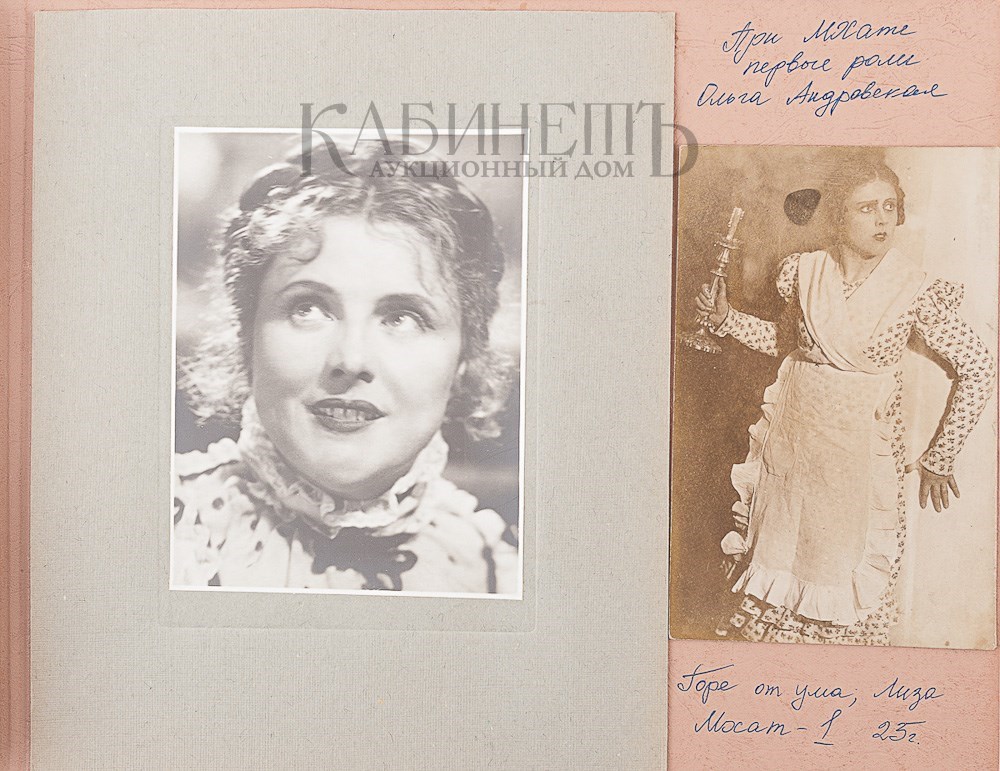 При МХате
первые роли
Ольга Андровская
КАБИНЕТЪ
АУКЦИОННЫЙ ДОМ
Горе от ума, Лиза
Мхат - 1 25г.